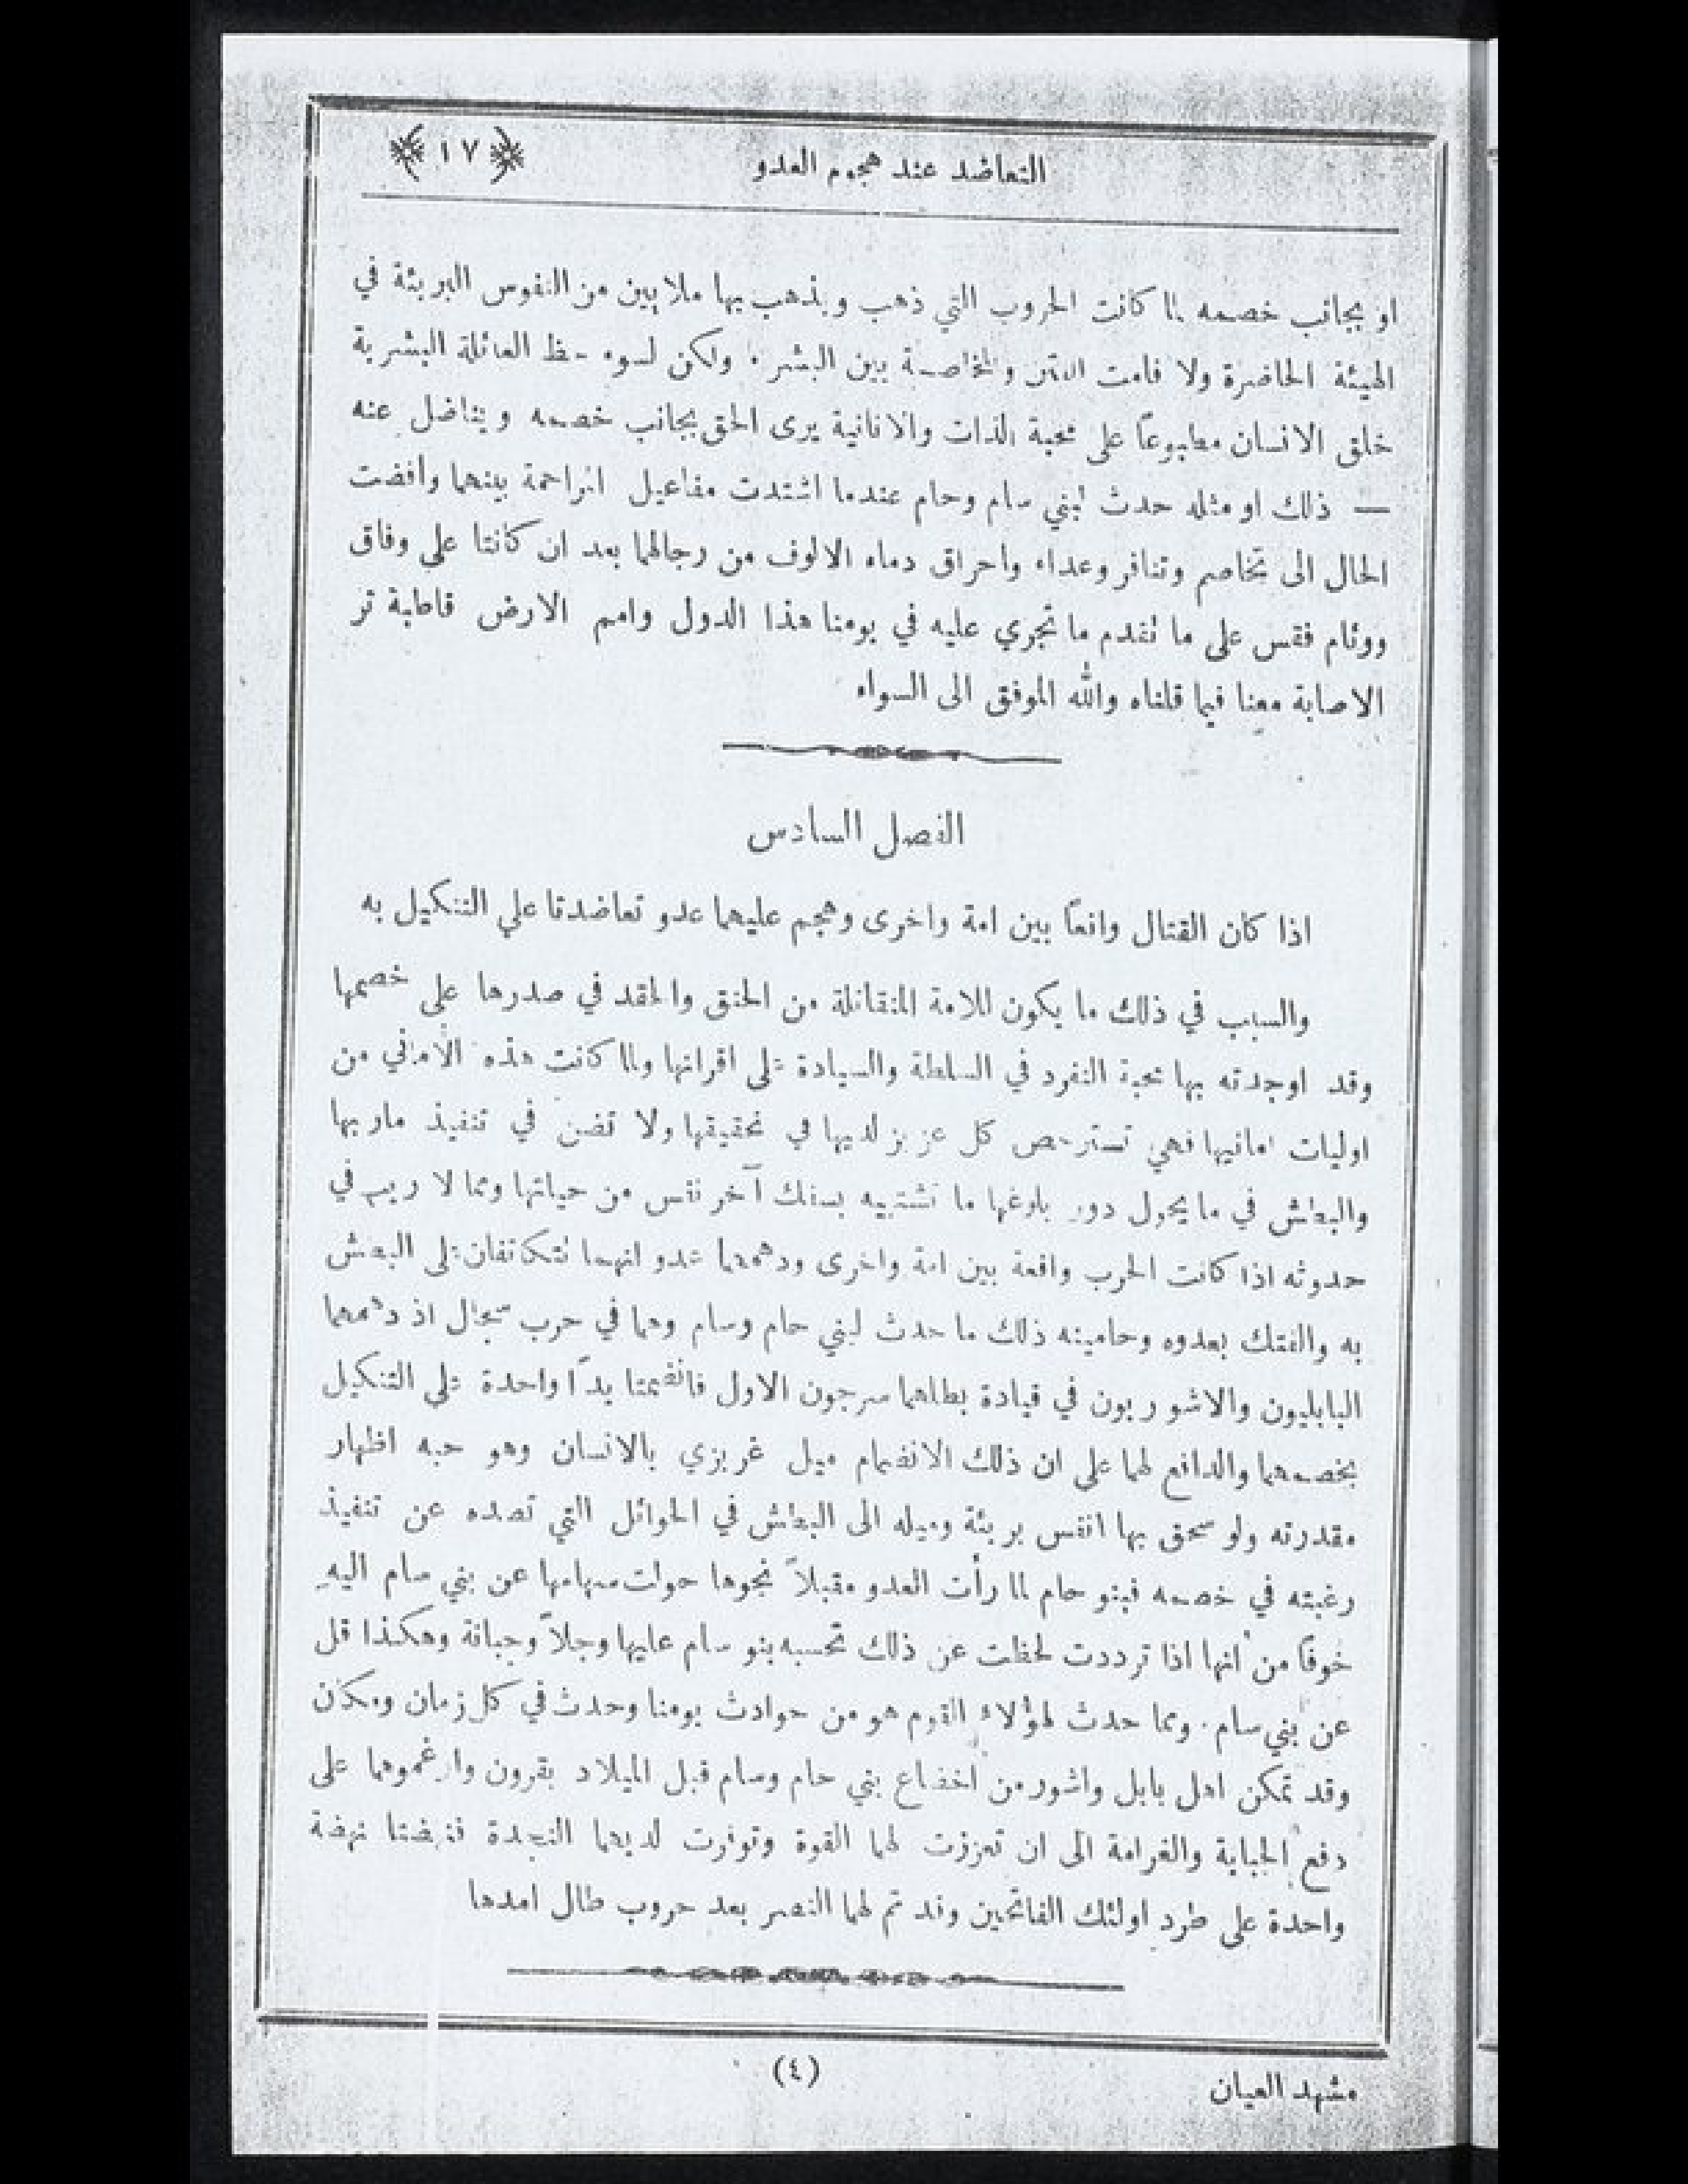 التعاضد عند هجوم العدو ﴿ ١٧ ﴾
او بجانب خصمه لما كانت الحروب التي ذهب ويذهب بها ملايين من النفوس البريئة في
الهيئة الحاضرة ولا قامت الفتن والمخاصمة بين البشر . ولكن لسوء حظ العائلة البشرية
خلق الانسان مطبوعاً على محبة الذات والانانية يرى الحق بجانب خصمه ويناضل عنه
— ذلك او مثله حدث لبني سام وحام عندما اشتدت مفاعيل المزاحمة بينهما وافضت
الحال الى تخاصم وتنافر وعداء واحراق دماء الالوف من رجالهما بعد ان كانتا على وفاق
ووئام فقس على ما تقدم ما تجري عليه في يومنا هذا الدول وامم الارض قاطبة تر
الاصابة معنا فيما قلناه والله الموفق الى السواء
الفصل السادس
اذا كان القتال واقعاً بين امة واخرى وهجم عليهما عدو تعاضدتا على التنكيل به
والسبب في ذلك ما يكون للامة المتقاتلة من الحنق والحقد في صدرها على خصمها
وقد اوجدته بها محبة التفرد في السلطة والسيادة على اقرانها ولما كانت هذه الأماني من
اوليات امانيها فهي تسترخص كل عزيز لديها في تحقيقها ولا تضن في تنفيذ ماربها
والبطش في ما يحول دون بلوغها ما تشتهيه بسفك آخر نفس من حياتها ومما لا ريب في
حدوثه اذا كانت الحرب واقعة بين امة واخرى ودهمهما عدو انهما تتكاتفان على البطش
به والفتك بعدوه وحاميته ذلك ما حدث لبني حام وسام وهما في حرب سجال اذ دهمهما
البابليون والاشوريون في قيادة بطلهما سرجون الاول فانضمتا يدًا واحدة على التنكيل
بخصمهما والدافع لهما على ان ذلك الانضمام ميل غريزي بالانسان وهو حبه اظهار
مقدرته ولو سحق بها انفس بريئة وميله الى البطش في الحوائل التي تصده عن تنفيذ
رغبته في خصمه فبنو حام لما رأت العدو مقبلاً نحوها حولت سهامها عن بني سام اليهِ
خوفًا من انها اذا ترددت لحظت عن ذلك تحسبه بنو سام عليها وجلاً وجبانة وهكذا قل
عن بني سام . ومما حدث لهؤلاء القوم هو من حوادث يومنا وحدث في كل زمان ومكان
وقد تمكن اهل بابل واشور من اخضاع بني حام وسام قبل الميلاد بقرون وارغموهما على
دفع الجباية والغرامة الى ان تعززت لهما القوة وتوفرت لديهما النجدة فنهضتا نهضة
واحدة على طرد اولئك الفاتحين وقد تم لهما النصر بعد حروب طال امدها
مشهد العيان (٤)